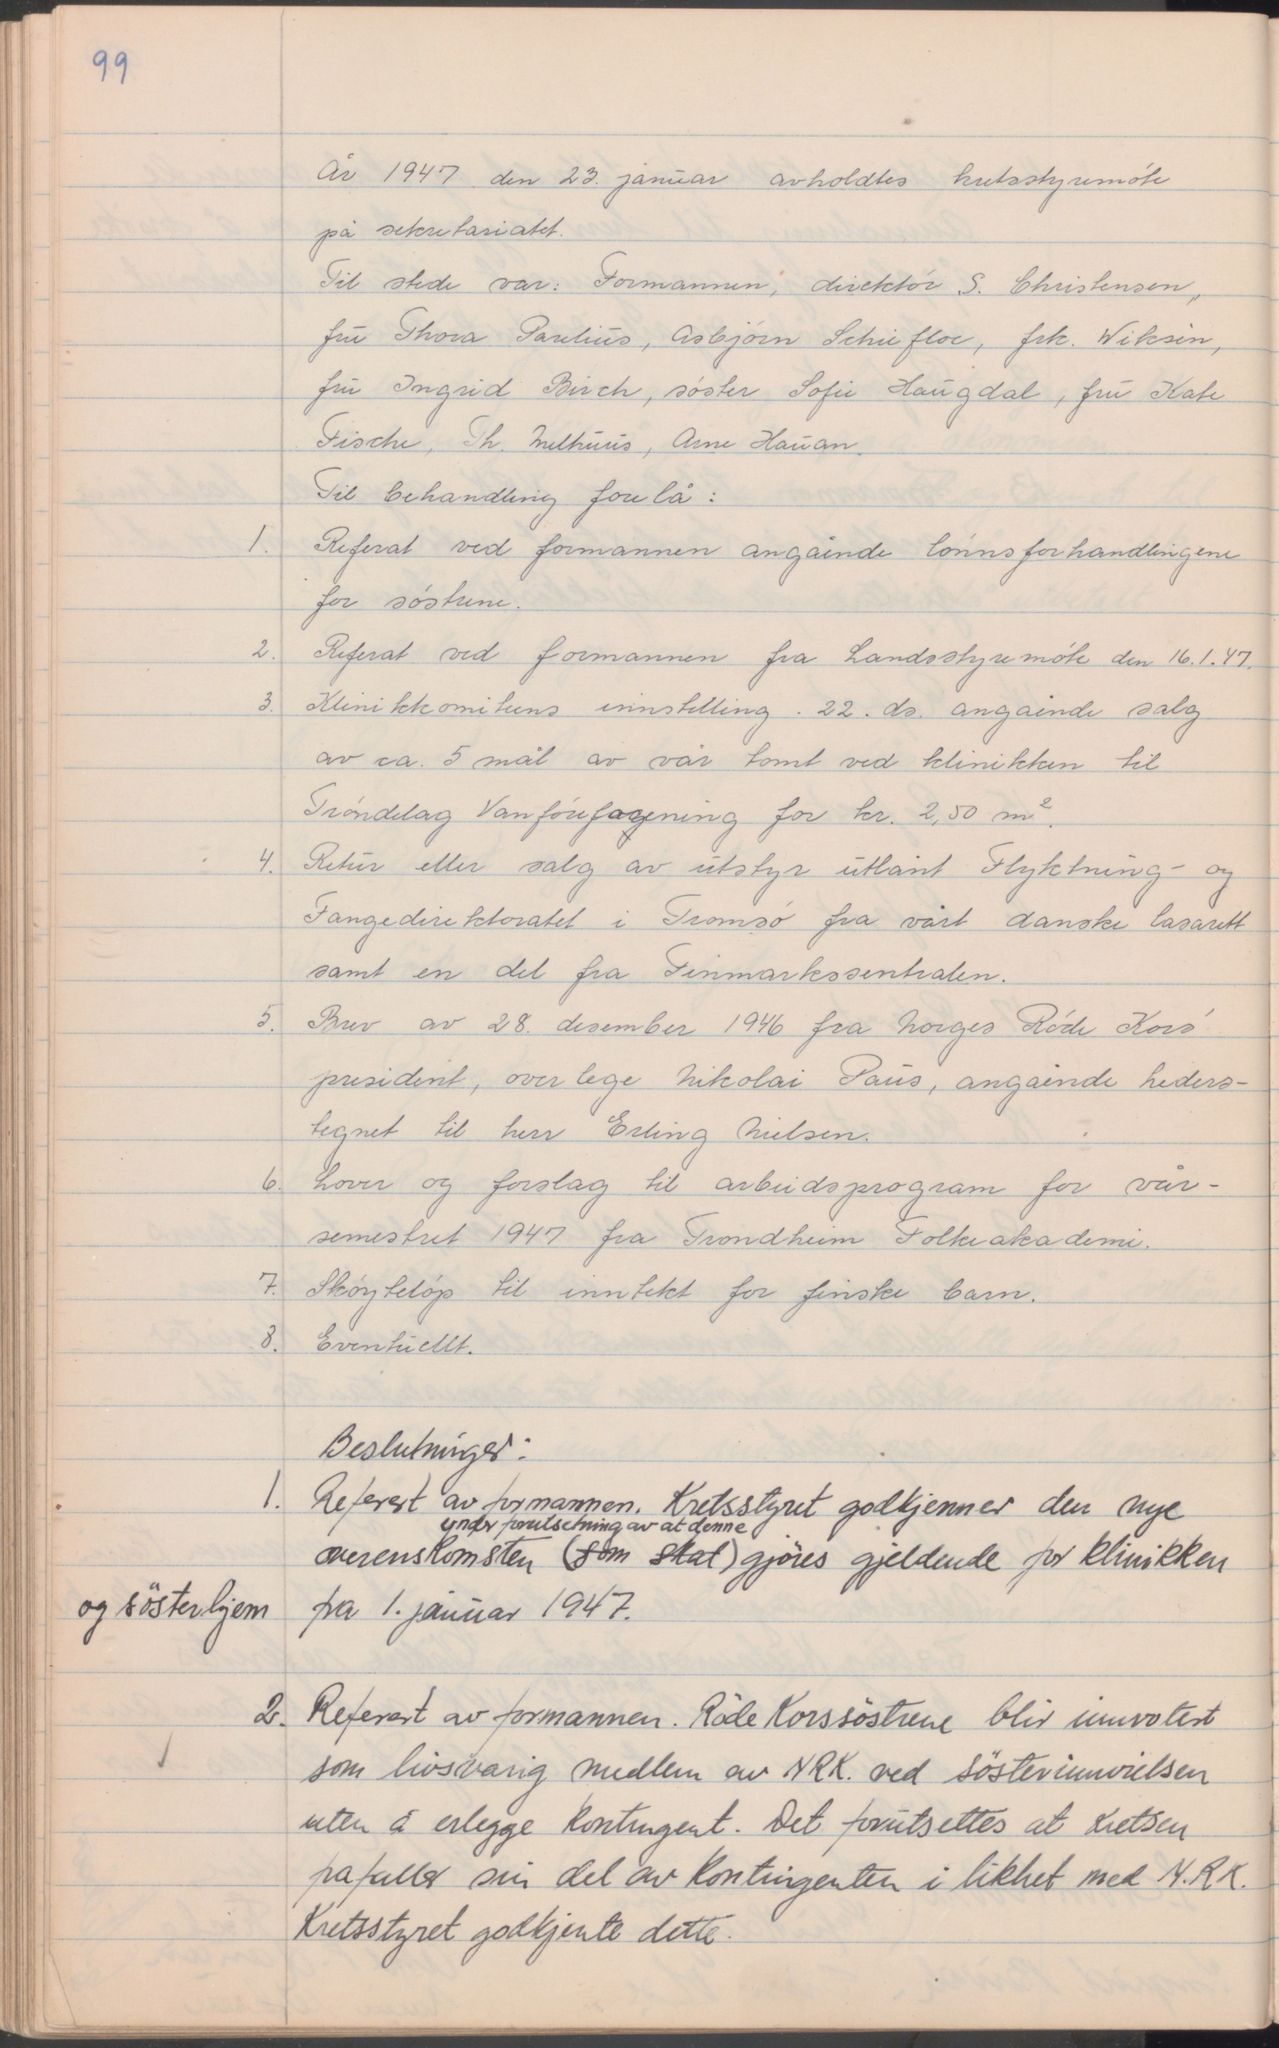 99
År 1947 den 23. januar avholdtes kretsstyremöte
på sekretariatet.
Til stede var: Formannen, direktör S. Christensen,
fru Thora Parelius, Asbjörn Schiefloe, frk. Wiksèn,
fru Ingrid Birch, söster Sofie Haugdal, fru Kate
Fische, Th. Melhuus, Arne Hauan.
Til behandling forelå:
1. Referat ved formannen angående lönnsforhandlingene
for söstrene.
2. Referat ved formannen fra Landsstyremöte den 16.1.47.
3. Klinikkomiteens innstilling . 22. ds. angående salg
av ca. 5 mål av vår tomt ved klinikken til
Tröndelag Vanföreforening for kr. 2,50 m².
4. Retur eller salg av utstyr utlånt Flyktning- og
Fangedirektoratet i Tromsö fra vårt danske lasarett
samt en del fra Finmarkssentralen.
5. Brev av 28. desember 1946 fra Norges Röde Kors'
president, overlege Nikolai Paus, angående heders-
tegnet til herr Erling Nielsen.
6. Lover og forslag til arbeidsprogram for vår-
semestret 1947 fra Trondheim Folkeakademi.
7. Sköyteløp til inntekt for finske barn.
8. Eventuellt.
Beslutninger:
1. Referert av formannen. Kretsstyret godkjenner den nye
under forutsetning av at denne
overenskomsten (som skal) gjöres gjeldende for klinikken
og söster hjem fra 1. januar 1947.
2. Referert av formannen. Röde Korssöstrene blir innvotert
som livsvarig medlem av NRK. ved sösterinnvielsen
uten å erlegge kontingent. Det forutsettes at kretsen
frafaller sin del av kontingenten i likhet med N.R.K.
Kretsstyret godkjente dette.